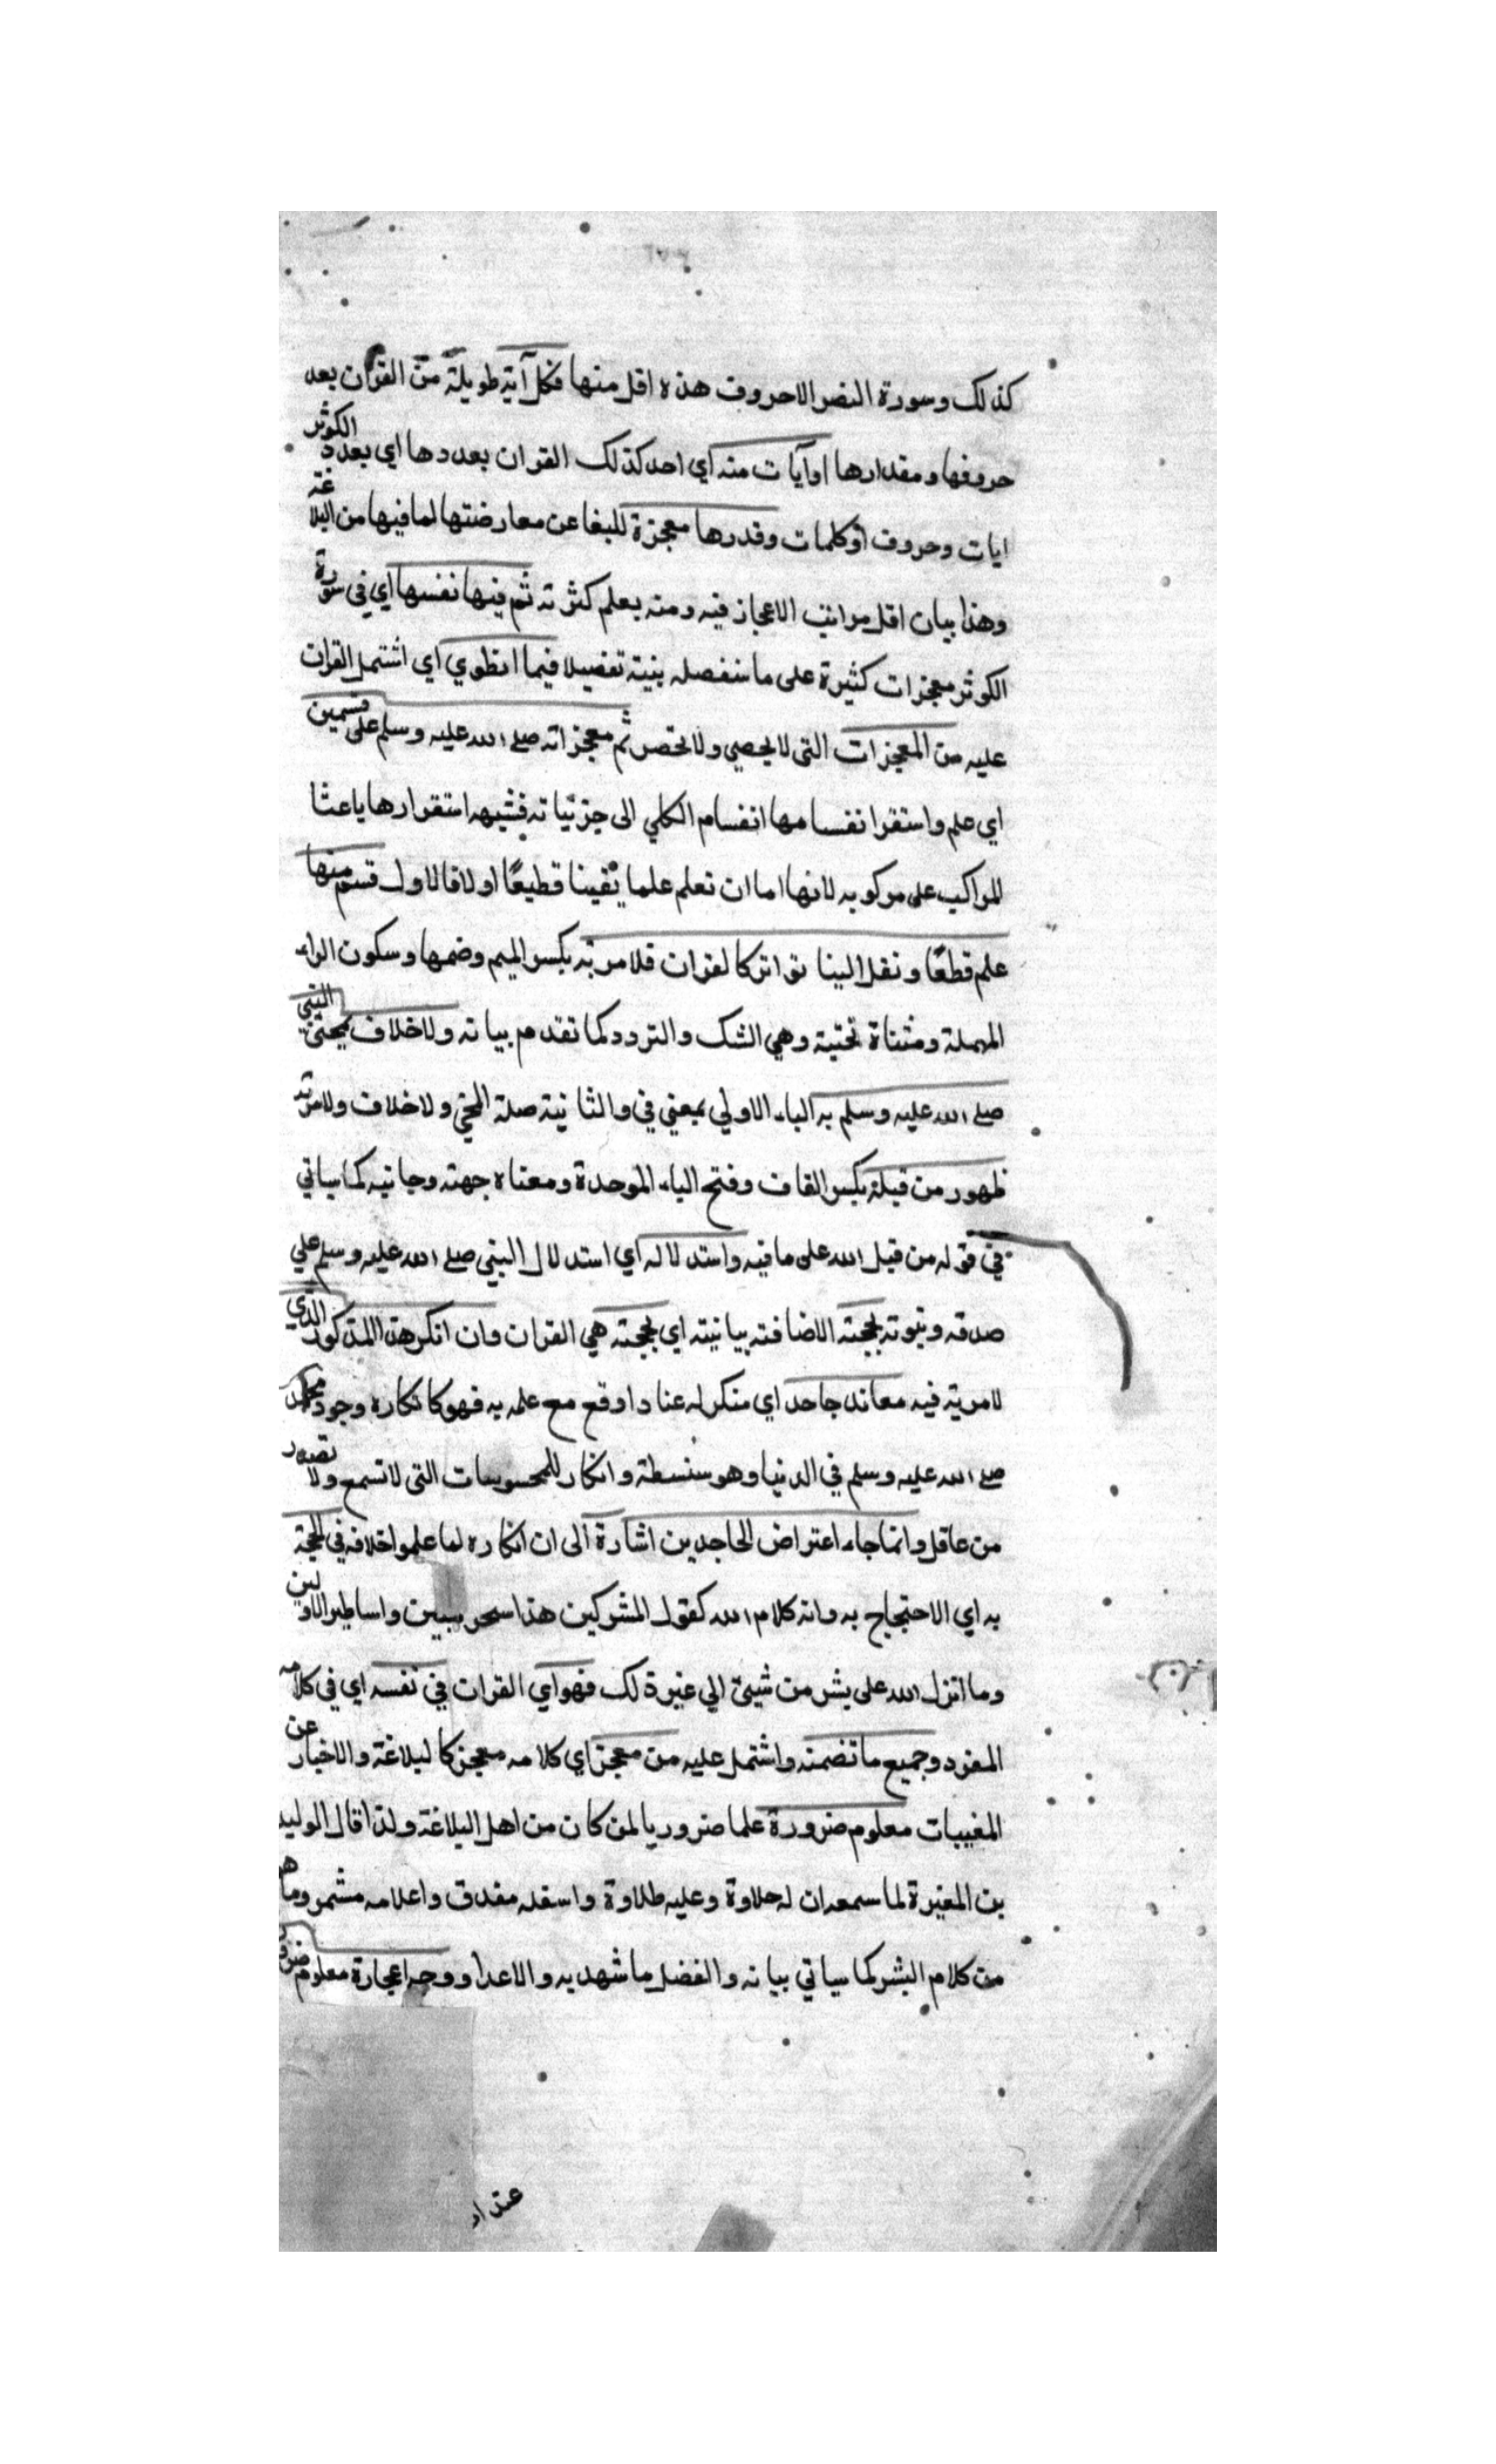 كذلك وسورة النصر الاحروف هذه اقل منها فكل آية طويلة من القران بعدد
حروفها ومقدارها اوآيات منه اي احد كذلك القران بعددها اي بعدد الكوثر
ايات وحروف أو كلمات وقدرها معجزة للبغا عن معارضتها لما فيها من البلاغة
وهذا بيان اقل مراتب الاعجاز فيه ومنه يعلم كثرته ثم فيها نفسها اي في سورة
الكوثر معجزات كثيرة على ما سنفصله بنيته تفصيلا فيما انطوي اي اشتمل القران
عليه من المعجزات التى لا يحصي ولا تحصر ثم معجزاته صلى الله عليه وسلم على قسمين
اي علم واستقرا نفسامها انفسام الكلي الى جزئياته فشبهه استقرارها ياعثا
للراكب على مركوبه لانها اما ان تعلم علما يقينا قطيعًا اولا فالاول قسم منها
علم قطعًا ونقل الينا تواتر كالقران فلا مرية بكسر الميم وضمها وسكون الراء
المهملة ومثناة تحتية وهي الشك والتردد كما تقدم بيانه ولا خلاف بمجئ النبي
صلى الله عليه وسلم به الباء الاولي بمعني في والثانية صلة المجئ ولا خلاف ولا مرية
ظهور من قبله بكسر القاف وفتح الباء الموحدة ومعناه جهته وجانبه كما سياتي
في قوله من قبل الله على ما فيه واستدلاله اي استدلال النبي صلى الله عليه وسلم علي
صدقه ونبوته بحجته الاضافته بيانيته اي بحجته هي القران وان انكر هذا المذكور الذي
لا مرية فيه معاند جاحد اي منكر له عنادا وقع مع علمه به فهو كانكاره وجود محمد
صلى الله عليه وسلم في الدنيا وهو سنسطة وانكار للمحسوسات التى لا تسمع ولا تصدر
من عاقل وانما جاء اعتراض الجاحدين اشارة الى ان انكاره لما علموا خلافه في الحجة
به اي الاحتجاج به وانه كلام الله كقول المشركين هذا سحر مبين واساطير الاولين
وما انزل الله على بشر من شيئ الي غير ذلك فهو اي القران في نفسه اي في كلامه
المفرد وجميع ما تضمنه واشتمل عليه من معجز اي كلامه معجز كالبلاغة والاخبار عن
المغيبات معلوم ضرورة علما ضروريا لمن كان من اهل البلاغة ولذا قال الوليد
بن المغيرة لما سمعه ان له حلاوة وعليه طلاوة واسفله مغدق واعلامه مشمر وما هو
من كلام البشر كما سياتي بيانه والفضل ما شهد به والاعدا ووجه اعجازة معلوم ضرورة